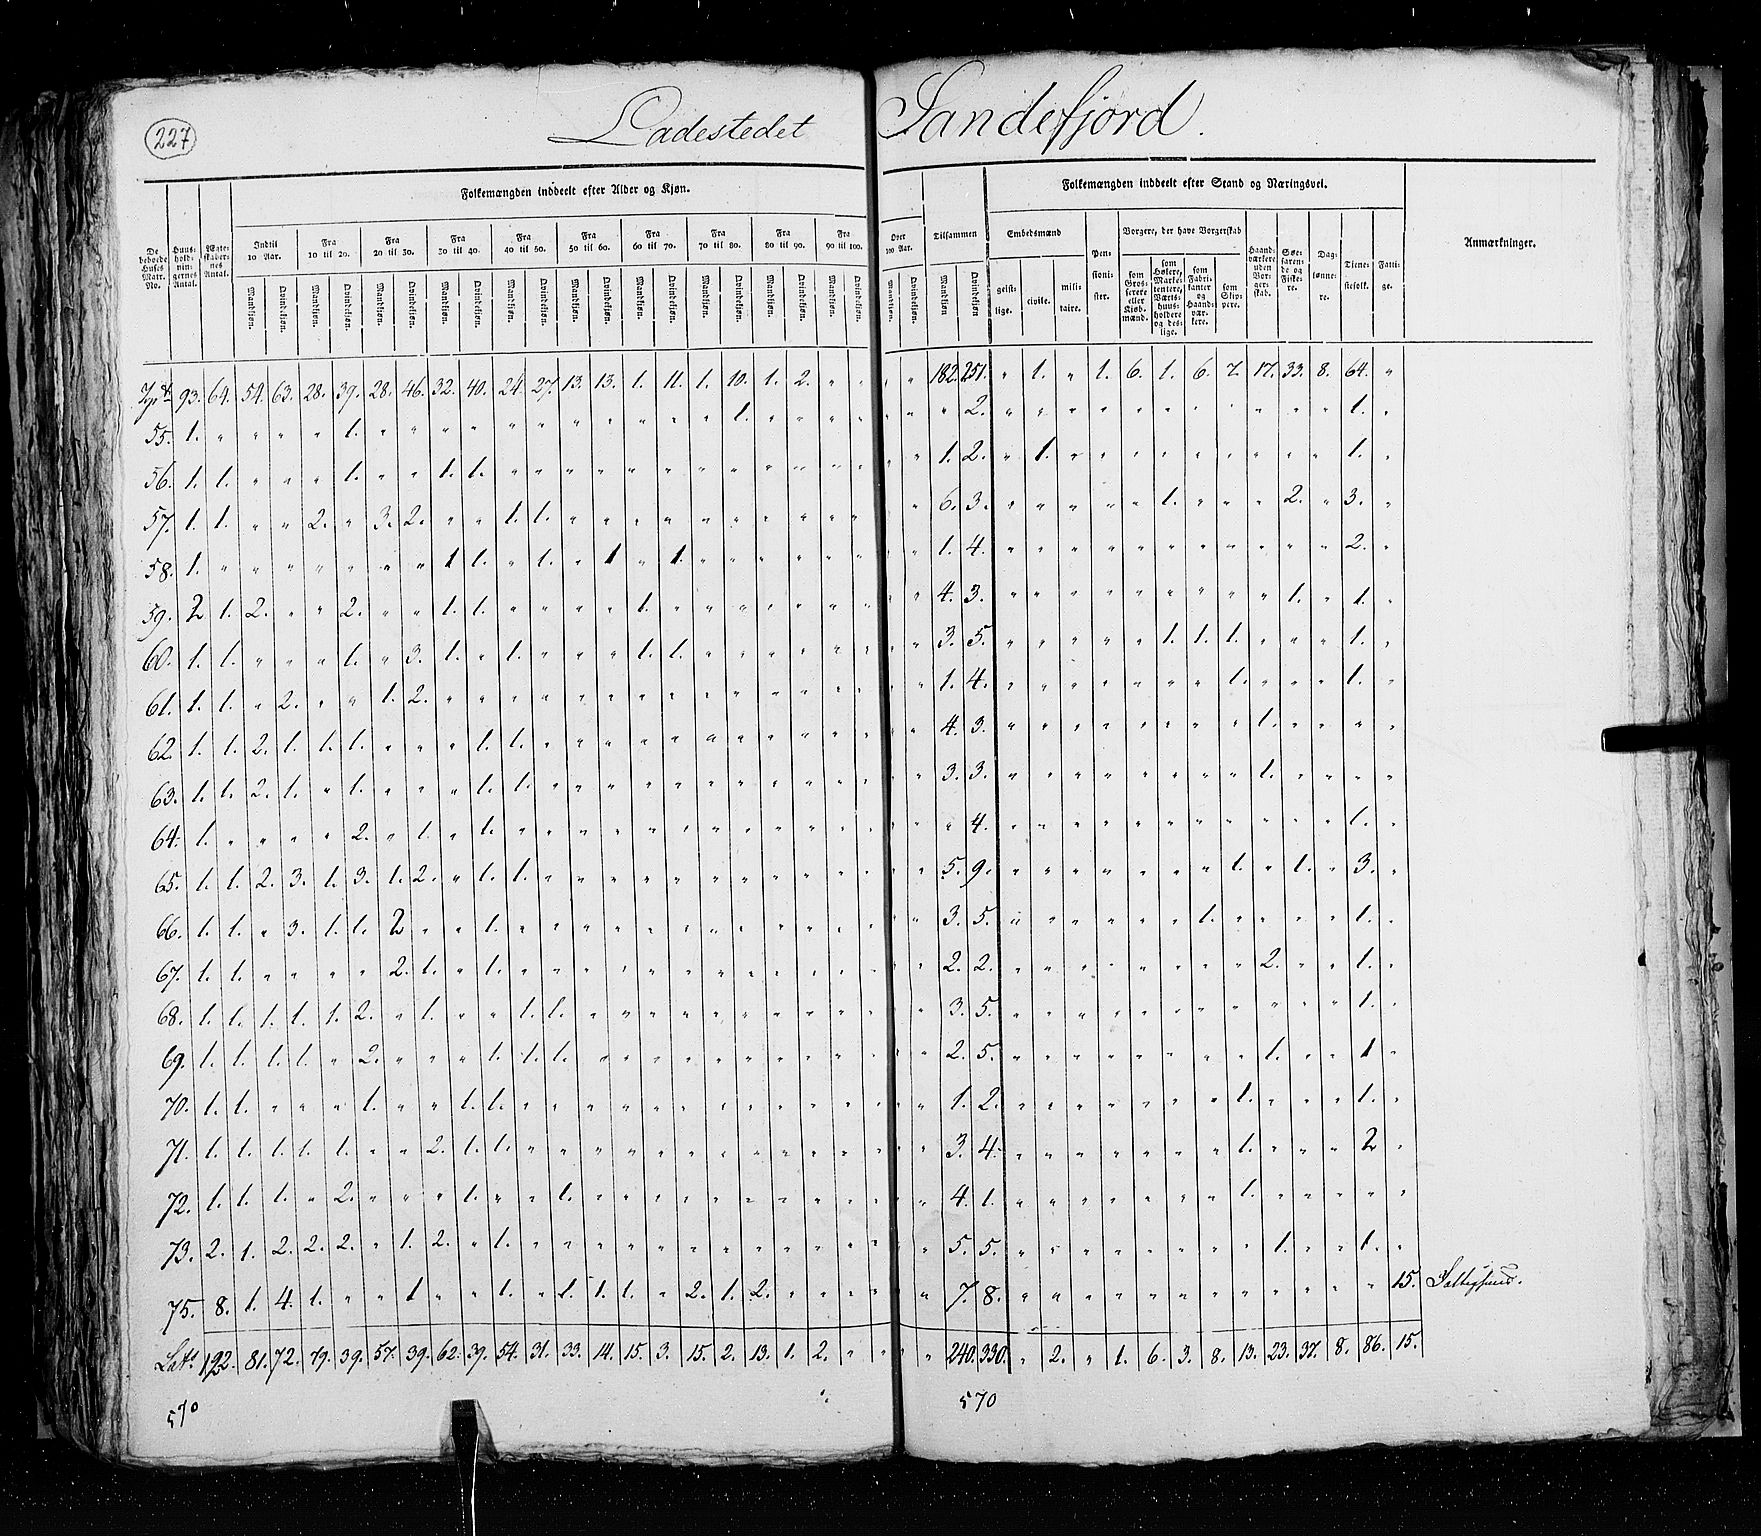 227
Ladestedet Sandefjord.
Folkemængden inddeelt efter Alder og Kjøn.
Folkemængden inddeelt efter Stand og Næringsvei.
De beboede Huses Matr. No.
Huus-hold-nin-gernes Antal.
Ægte-skaber-nes Antal.
Indtil 10 Aar.
Fra 10 til 20.
Fra 20 til 30.
Fra 30 til 40.
Fra 40 til 50.
Fra 50 til 60.
Fra 60 til 70.
Fra 70 til 80.
Fra 80 til 90.
Fra 90 til 100.
Over 100 Aar.
Tilsammen
Embedsmænd
Pen-sioni-ster.
Borgere, der have Borgerskab
Haand-værkere uden Bor-ger-skab.
Søe-faren-de og Fiske-re.
Dag-lønne-re.
Tjene-stefolk.
Fatti-ge.
Anmærkninger.
Mandkjøn. Qvindekjøn. Mandkjøn. Qvindekjøn. Mandkjøn. Qvindekjøn. Mandkjøn. Qvindekjøn. Mandkjøn. Qvindekjøn. Mandkjøn. Qvindekjøn. Mandkjøn. Qvindekjøn. Mandkjøn. Qvindekjøn. Mandkjøn. Qvindekjøn. Mandkjøn. Qvindekjøn. Mandkjøn. Qvindekjøn. Mandkjøn Qvindekjøn
geist-lige. civile. mili-taire.
som Gros-serere eller Kjøb-mænd.
som Høkere, Marke-tentere, Værts-huus-holdere og des-lige.
som Fabri-kanter og Haand-vær-kere.
som Skip-pere.
93. 64. 54. 63. 28. 39. 28. 46. 32. 40. 24. 27. 13. 13. 1. 11. 1. 10. 1. 2. " " " " 182. 251. " 1. " 1. 6. 1. 6. 7. 17. 33. 8. 64. "
55. 1. " " " " " 1. " " " " " " " " " " " 1. " " " " " " " 2. " " " " " " " " " " " 1. "
56. 1. 1. " " " 1. " " 1. 1. " " " " " " " " " " " " " " 1. 2. " 1. " " " " " " " " " 1. "
57. 1. 1. " " 2. " 3. 2. " " 1. 1. " " " " " " " " " " " " 6. 3. " " " " " 1. " " " 2. " 3. "
58. 1. " " " " " " " 1 1. " 1. " 1 " 1. " " " " " " " " 1. 4. " " " " " " " " " " " 2. "
59. 2 1. 2. " " 2. " " 1. 1. " " " " 1. " " " " " " " " " 4. 3. " " " " " " " " " 1. " 1. "
60. 1. 1. " " " 1. " 3. 1. " 1. " " " 1. 1. " " " " " " " " 3. 5. " " " " " 1. 1. 1. " " " 1. "
61. 1. 1. " 2. " " 1. 2. " " " " " " " " " " " " " " " " 1. 4. " " " " " " " 1. " " " 1. "
62. 1. 1. 2. 1. 1. 1. " " " 1. 1. " " " " " " " " " " " " " 4. 3. " " " " " " " " 1. " " " "
63. 1. 1. 2. 1. " 1. " " " 1. 1. " " " " " " " " " " " " " 3. 3. " " " " " " " " 1. " " " "
64. 1. " " " " 2. " 1. " 1. " " " " " " " " " " " " " " " 4. " " " " " " " " " " " 1. "
65. 1. 1. 2. 3. 1. 3. 1. 2. " 1. 1. " " " " " " " " " " " " " 5. 9. " " " " " " " 1. " 1. " 3. "
66. 1. 1. " 3. 1. 1. 2 " " 1. " " " " " " " " " " " " " " 3. 5. " " " " " " 1. " " " " 1. "
67. 1. 1. " " " " 2. 1. " 1. " " " " " " " " " " " " " " 2. 2. " " " " " " " " 2. " " 1. "
68. 1. 1. 1. 1. 1. 2. " 1. " " 1. 1. " " " " " " " " " " " " 3. 5. " " " " " " " " " " " 1. "
69. 1. 1. 1. 1. " 2. " " " 1. 1. 1. " " " " " " " " " " " " 2. 5. " " " " " " " " 1. " " 1 "
70. 1. 1. " " " 1. " " 1. 1. " " " " " " " " " " " " " " 1. 2. " " " " " " " 1. " " " 1. "
71. 1. 1. 1. 1. 1. " " 2. 1. 1. " " " " " " " " " " " " " " 3. 4. " " " " " " " 1. " " " 2 "
72. 1. 1. 1. " 2. " " " 1. " " 1. " " " " " " " " " " " " 4. 1. " " " " " " " 1. " " " " "
73. 2. 1. 2. 2. 2. " 1. 2. " 1. " " " " " " " " " " " " " " 5. 5. " " " " " " " " 1. " " 1. "
75. 8. 1. 4. 1. " " 1 " " 1. " 1. 1. 1. " 2. 1. 2. " " " " " " 7. 8. " " " " " " " " " " " " 15.
Lat. 122. 81. 72. 79. 39. 57. 39. 62. 39. 54. 31. 33. 14. 15. 3. 15. 2. 13. 1. 2. " " " " 240. 330. " 2. " 1. 6. 3. 8. 13. 23. 37. 8. 86. 15.
570
570